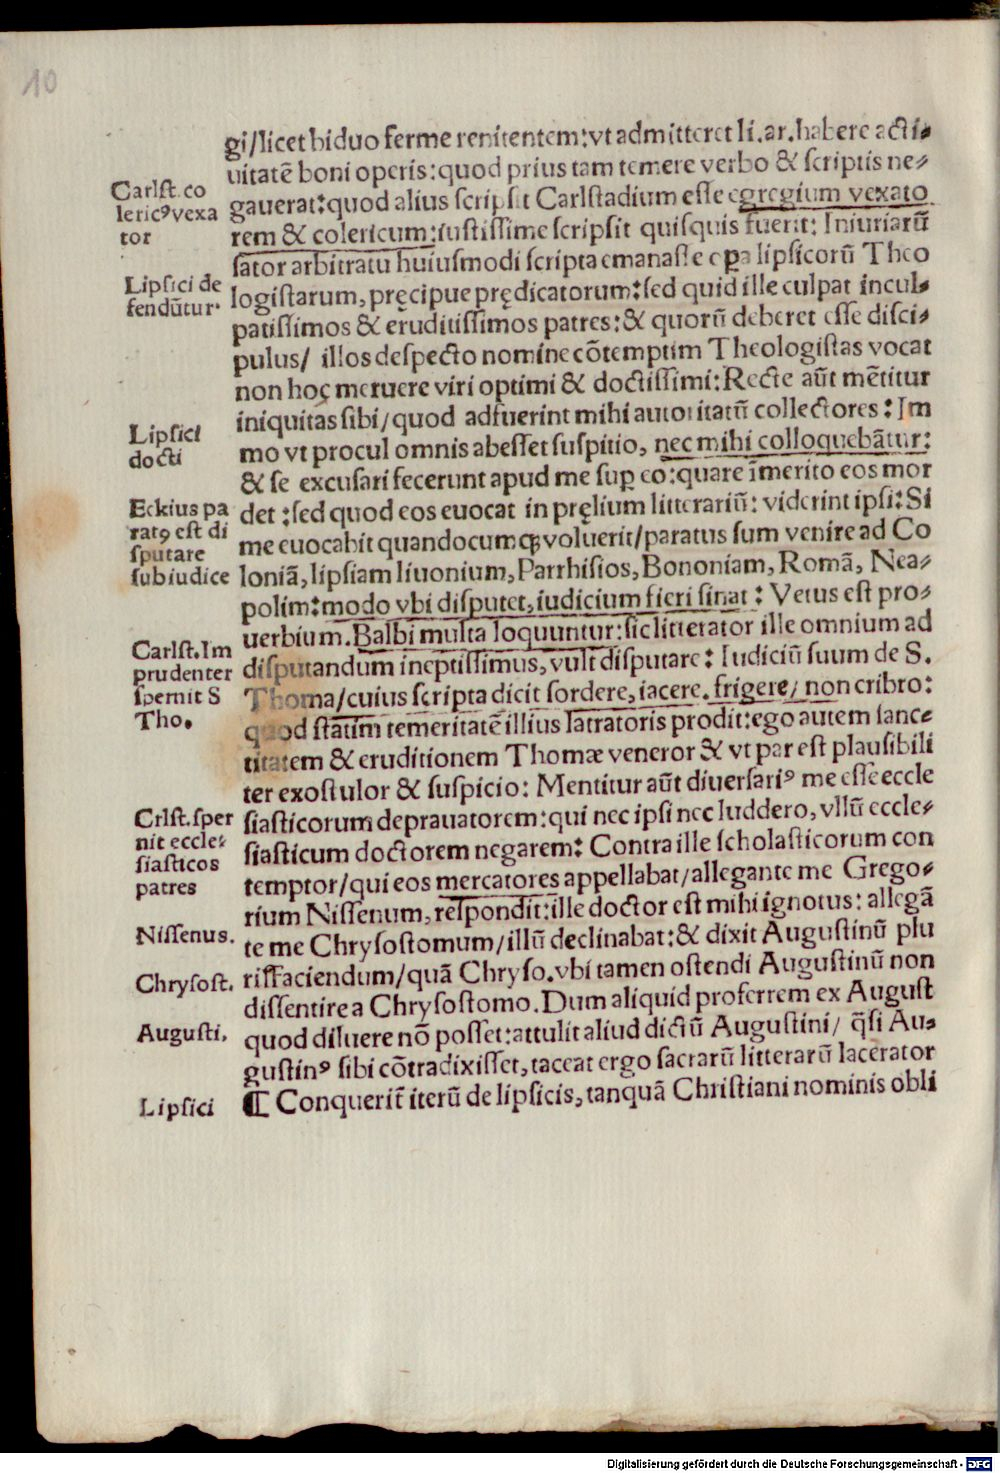 10
gi/licet biduo ferme renitentem:vt admitteret li.ar.habere acti⸗
uitatē boni operis:quod prius tam temere verbo & scriptis ne⸗
Carlst. co
lericꝰ vexa
tor
gauerat:quod alius scripsit Carlstadium esse egregium vexato
rem & colericum:iustissime scripsit quisquis fuerit: Iniuriarū
sator arbitratu huiusmodi scripta emanasse e ꝑa lipsicorū Theo
Lipsici de
fendūtur.
logistarum, pręcipue prędicatorum:sed quid ille culpat incul⸗
patissimos & eruditissimos patres:& quorū deberet esse disci⸗
pulus/ illos despecto nomine cōtemptim Theologistas vocat
non hoc meruere viri optimi & doctissimi:Recte aūt mētitur
iniquitas sibi/quod adfuerint mihi autoritatū collectores: Im
Lipsici
docti
mo vt procul omnis abesset suspitio, nec mihi colloquebātur:
& se excusari fecerunt apud me suꝑ eo:quare īmerito eos mor
Eckius pa
ratꝰ est di
sputare
sub iudice
det:sed quod eos euocat in pręlium litterariū: viderint ipsi:Si
me euocabit quandocumqꝫ voluerit/paratus sum venire ad Co
loniā, lipsiam liuonium, Parrhisios, Bononiam, Romā, Nea⸗
polim:modo vbi disputet, iudicium fieri sinat: Vetus est pro⸗
uerbium. Balbi multa loquuntur:sic litterator ille omnium ad
Carlst. Im
prudenter
spernit S
Tho.
disputandum ineptissimus, vult disputare: Iudiciū suum de S.
Thoma/cuius scripta dicit sordere, iacere. frigere/ non cribro:
quod statim temeritatē illius latratoris prodit:ego autem sanc⸗
titatem & eruditionem Thomæ veneror & vt par est plausibili
ter exostulor & suspicio: Mentitur aūt diuersariꝰ me esse eccle
Crlst. sper
nit eccle⸗
siasticos
patres
siasticorum deprauatorem:qui nec ipsi nec luddero, vllū eccle⸗
siasticum doctorem negarem: Contra ille scholasticorum con
temptor/qui eos mercatores appellabat/allegante me Grego⸗
Nissenus.
rium Nissenum, respondit:ille doctor est mihi ignotus: allegā
te me Chrysostomum/illū declinabat:& dixit Augustinū plu
Chrysost.
riffaciendum/quā Chryso.vbi tamen ostendi Augustinū non
dissentire a Chrysostomo. Dum aliquid proferrem ex August
Augusti.
quod diluere nō posset:attulit aliud dictū Augustini/ q̄si Au⸗
gustinꝰ sibi cōtradixisset, taceat ergo sacrarū litterarū lacerator
Lipsici
⸿ Conquerit̄ iterū de lipsicis, tanquā Christiani nominis obli
Digitalisierung gefördert durch die Deutsche Forschungsgemeinschaft - DFG